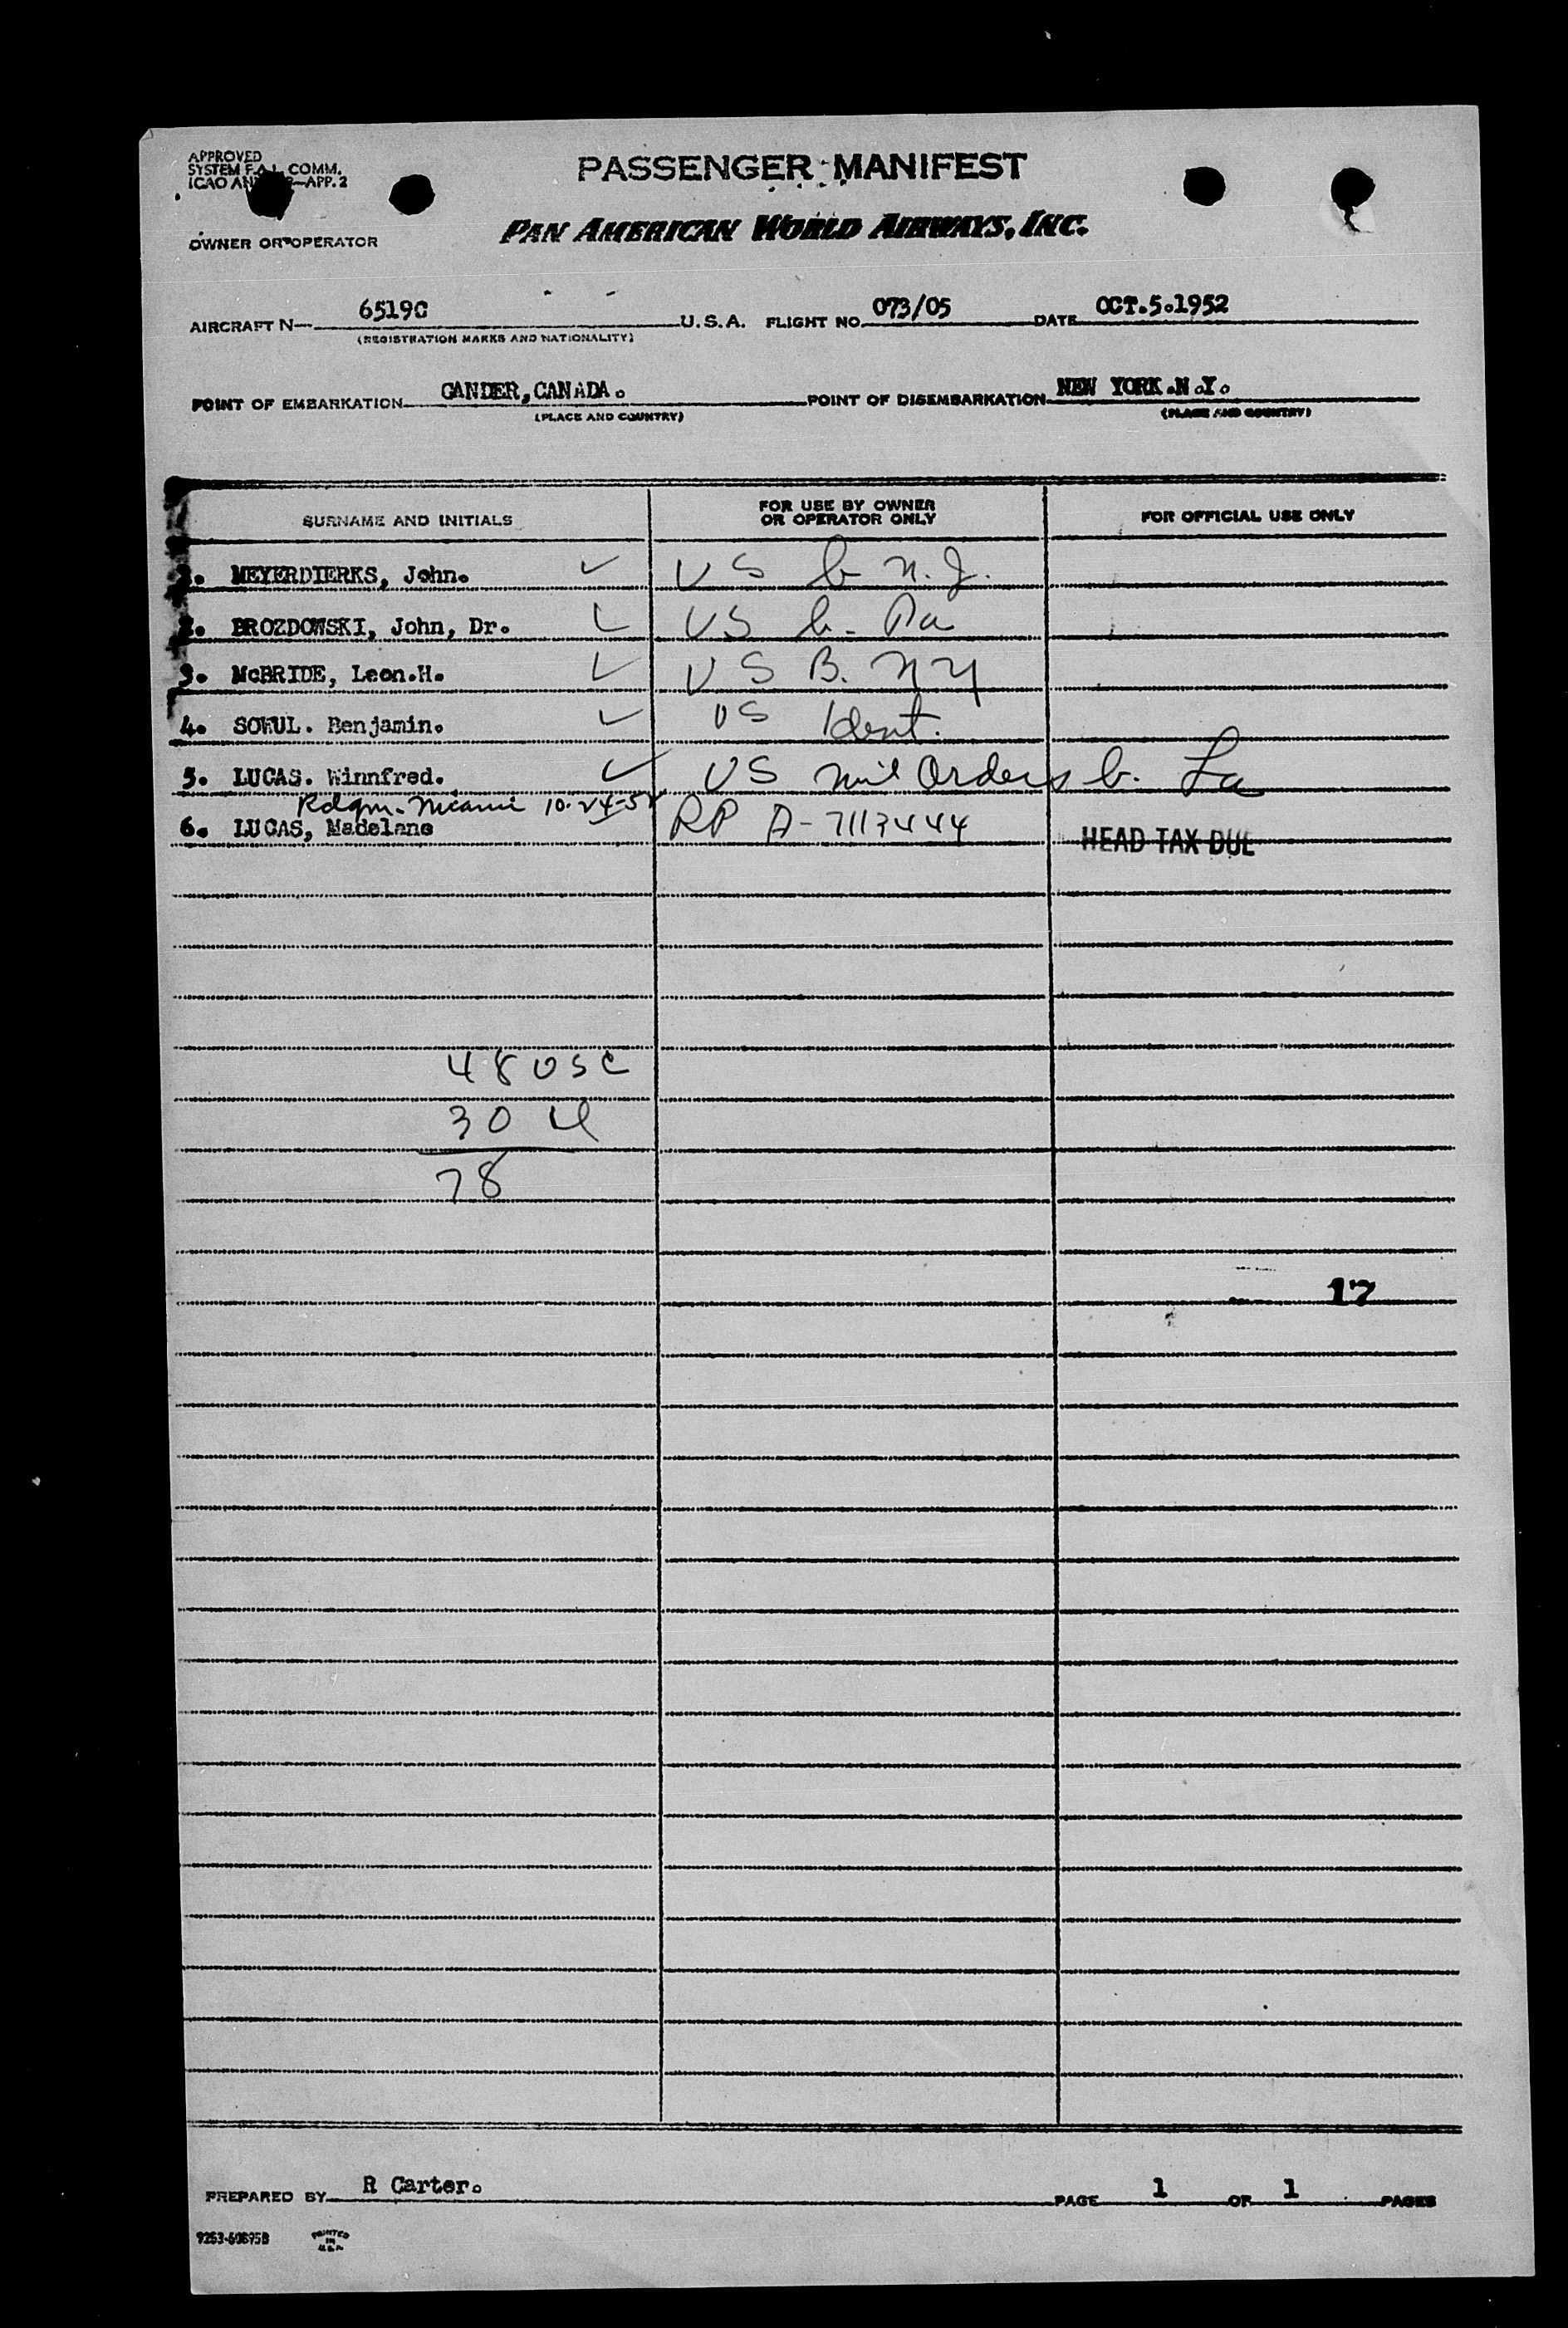 APPROVED
SYSTEM F.A.L. COMM.
ICAO -APP. 2
PASSENGER MANIFEST
OWNER OR OPERATOR
PAN AMERICAN WORLD AIRWAYS, INC.
AIRCRAFT N- 6519C U.S.A. FLIGHT NO. 073/05 DATE OCT.5.1952
(REGISTRATION MARKS AND NATIONALITY)
POINT OF EMBARKATION GANDER, CANADA. POINT OF DISEMBARKATION NEW YORK.N.Y.
(PLACE AND COUNTRY) (PLACE AND COUNTRY)
SURNAME AND INITIALS FOR USE BY OWNER OR OPERATOR ONLY FOR OFFICIAL USE ONLY
1. MEYERDIERKS, John. ✓ US b- N.J.
2. BROZDOWSKI, John, Dr. ✓ US b- Pa
3. McBRIDE, Leon.H. ✓ US B. NY
4. SOWUL. Benjamin. ✓ US Ident.
5. LUCAS. Winnfred. ✓ US mil Orders b. La
Rdqm. Miami 10-24-52
6. LUCAS, Madelane RP A-7113444 HEAD TAX DUE
48 USC
30
78
17
PREPARED BY R Carter. PAGE 1 OF 1 PAGES
PRINTED
IN
U.S.A.